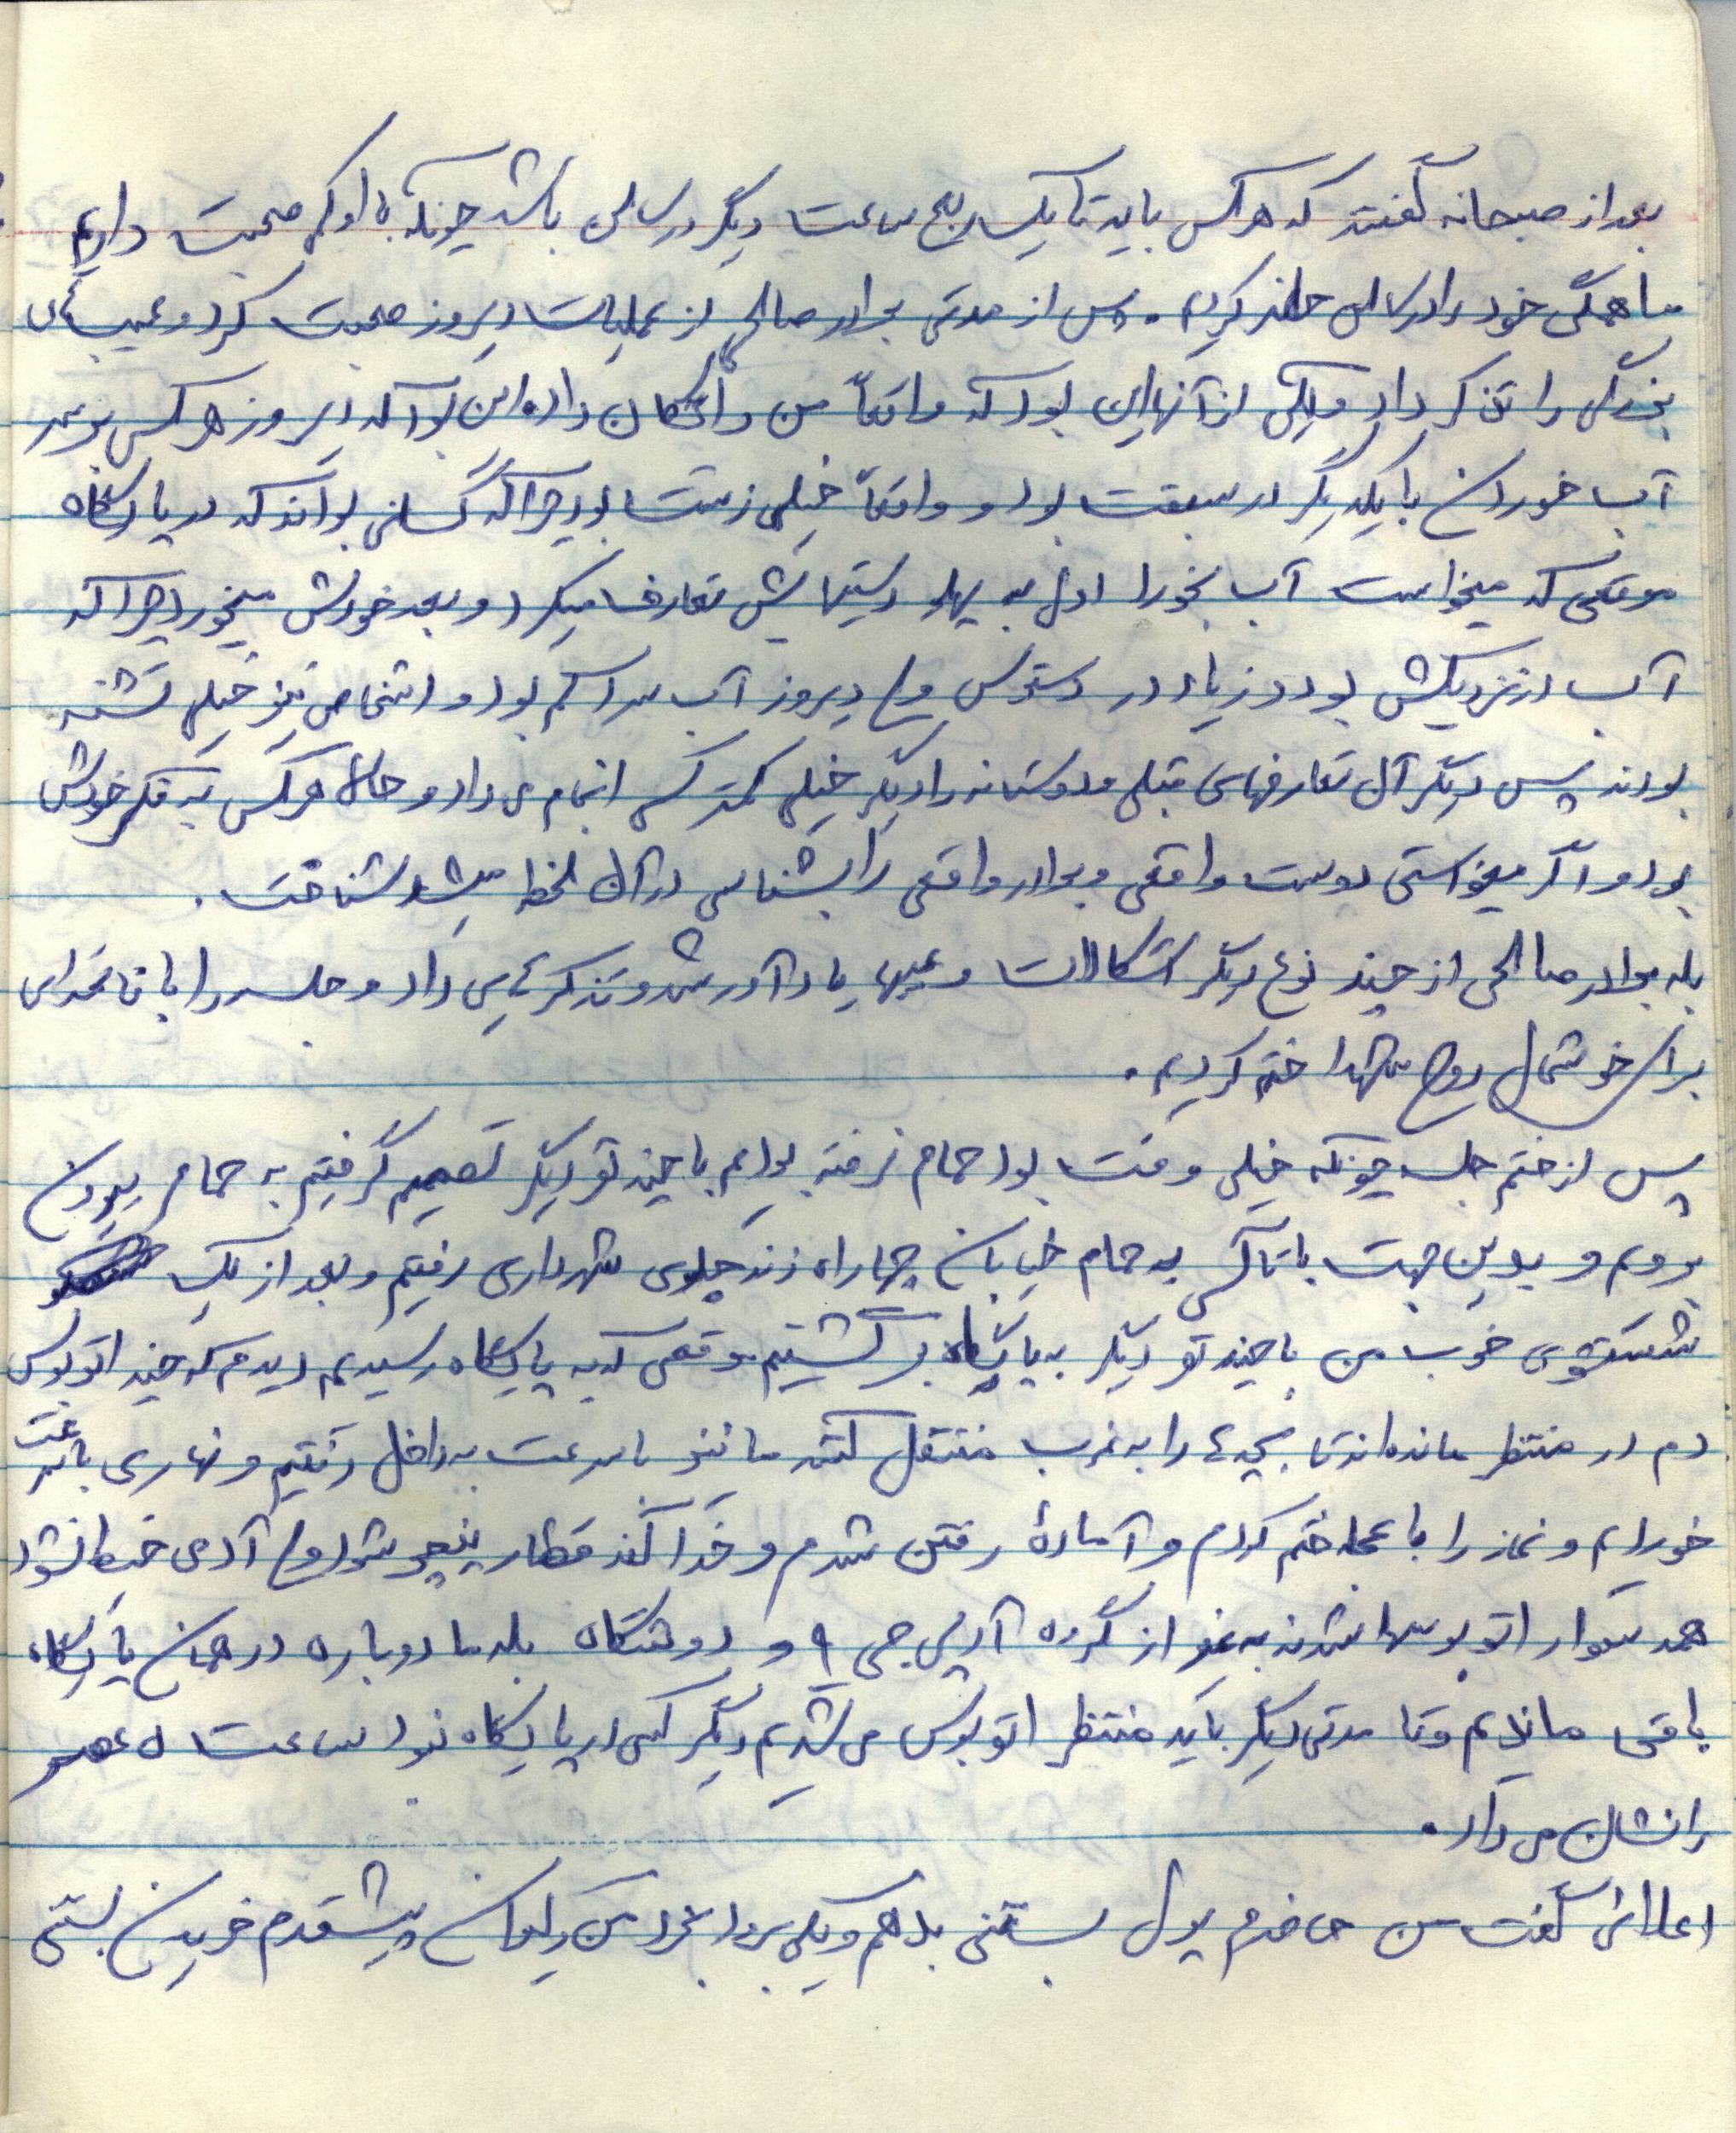 بعد از صبحانه گفتند که هرکس باید تا یک ربع ساعت دیگر در سالن باشد چونکه با او کم صحبت داریم
ما همگی خود را در سالن حاضر کردیم. پس از مدتی برادر صالحی از عملیات دیروز صحبت کرد و عیب‌های
بزرگی را تذکر داد و یکی از آنها این بود که واقعاً من را تکان داد این بود که دیروز هرکس بر سر
آب خوردن با یکدیگر در سبقت بود و واقعاً خیلی زشت بود چرا که کسانی بودند که در پایگاه
موقعی که میخواست آب بخورد اول به پهلو دستیهایش تعارف میکرد و بعد خودش میخورد چرا که
آب در نزدیکش بود و زیاد در دسترس ولی دیروز آب سرد کم بود و اشخاص نیز خیلی تشنه
بودند پس دیگر آن تعارفهای قبلی و دوستانه را دیگر خیلی کمتر کسی انجام می‌داد و حالا هرکس به فکر خودش
بود و اگر میخواستی دوست واقعی و برادر واقعی را بشناسی در آن لحظه میشد شناخت.
بله برادر صالحی از چند نوع دیگر اشکالات و عیبها یادآور شد و تذکرهایی داد و جلسه را با فاتحه‌ای
برای خوشحالی روح شهدا ختم کردیم.
پس از ختم جلسه چونکه خیلی وقت بود حمام نرفته بودیم با چند تو دیگر تصمیم گرفتیم به حمام بیرون
برویم و بدین جهت با تاکسی به حمام خیابان چهارراه زند جلوی شهرداری رفتیم و بعد از یک
شستشوی خوب من با چند تو دیگر به پایگاه برگشتیم موقعی که به پایگاه رسیدیم دیدم که چند اتوبوس
دم در منتظر مانده‌اند تا بچه‌ها را به غرب منتقل کنند ما نیز با سرعت به داخل رفتیم و نهاری با سرعت
خوردیم و نماز را با عجله ختم کردم و آمادهٔ رفتن شدم و خدا کند قطار پنچر شود ولی آدمی خیط نشود
همه سوار اتوبوسها شدند به غیر از گروه آرپی جی ۹ و دوشکا بله ما دوباره در همان پایگاه
باقی ماندیم و تا مدتی دیگر باید منتظر اتوبوس می‌شدیم دیگر کسی در پایگاه نبود ساعت ۵ عصر
را نشان می‌داد.
گفت من حاضرم پول بستنی بدهم و یکی برود بخرد من داوطلب پیشقدم خریدن بستنی